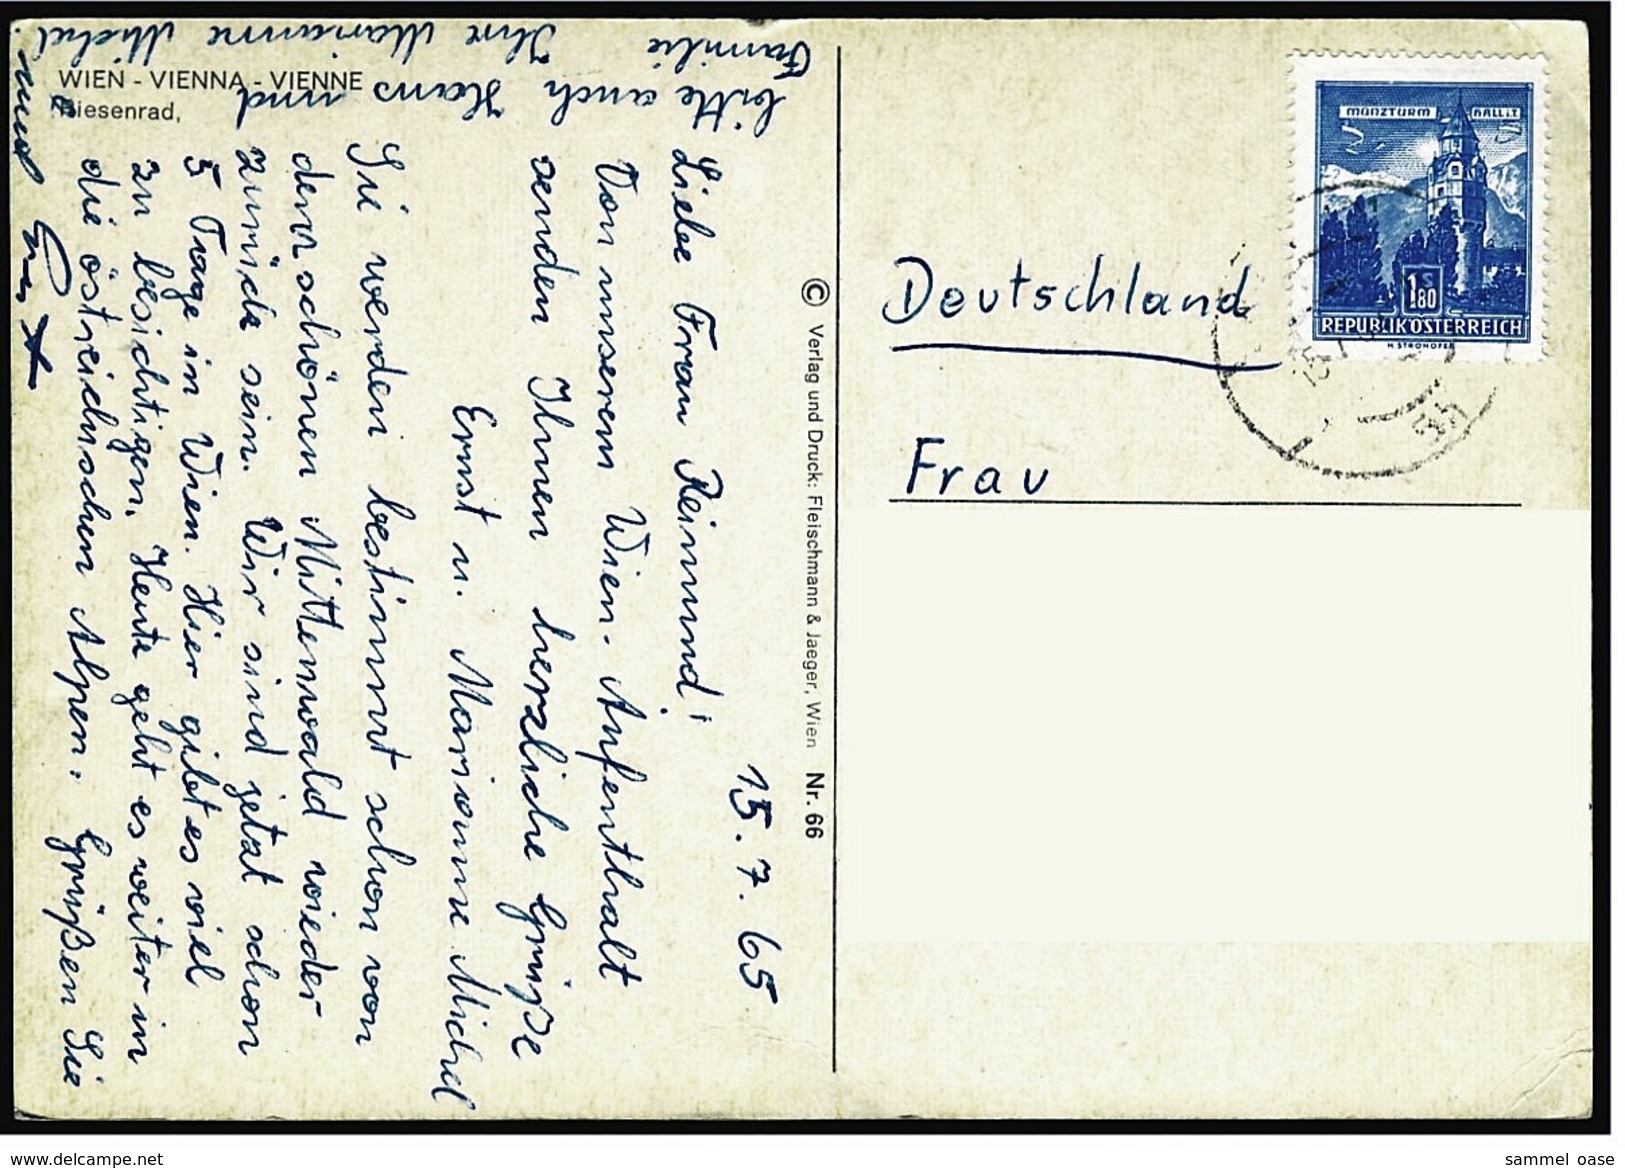 WIEN - VIENNA - VIENNE
Riesenrad,
15. 7. 65
Liebe Frau Reimund!
Von unserem Wien-Aufenthalt
senden Ihnen herzliche Grüße
Ernst u. Marianne Michel
Sie werden bestimmt schon von
dem schönen Mittenwald wieder
zurück sein. Wir sind jetzt schon
5 Tage in Wien. Hier gibt es viel
zu besichtigen. Heute geht es weiter in
die östreichischen Alpen. Grüßen Sie
bitte auch Hans und
Familie Ihre Marianne Michel.
und Ernst
© Verlag und Druck: Fleischmann & Jaeger, Wien Nr. 66
Deutschland
Frau
MÜNZTURM HALL i.T
1.80
REPUBLIK ÖSTERREICH
H. STROHOFER
delcampe.net
sammel oase